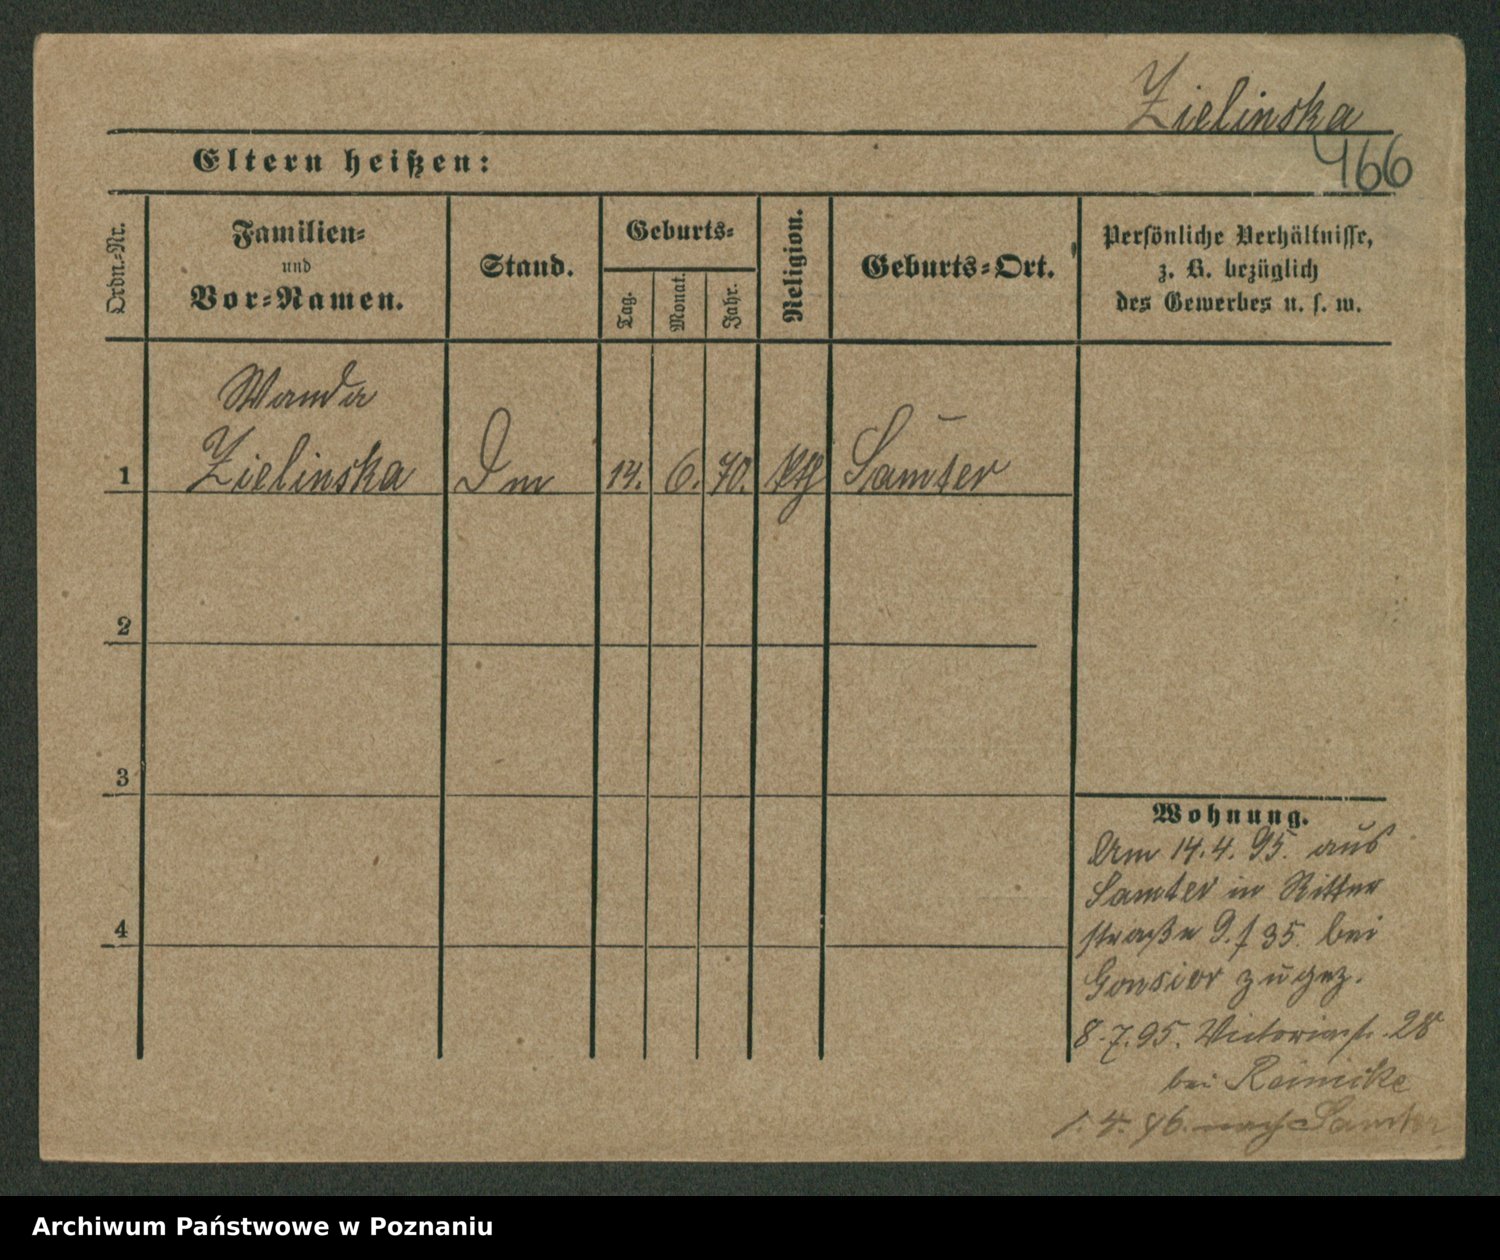 Zielinska
Eltern heißen:
466
Ordn.-Nr.
Familien-
und
Vor-Namen.
Stand.
Geburts-
Tag.
Monat.
Jahr.
Religion.
Geburts-Ort.
Persönliche Verhältnisse,
z. B. bezüglich
des Gewerbes u. s. w.
Wanda
1 Zielinska 14. 6. 70. kth Samter
2
3
4
Wohnung.
Am 14.4.95. aus
Samter in Ritter
straße 35. bei
Gonsior zugez.
8.7.95. Victoriastr. 28
bei Reinicke
1.4.96. nach Samter
Archiwum Państwowe w Poznaniu